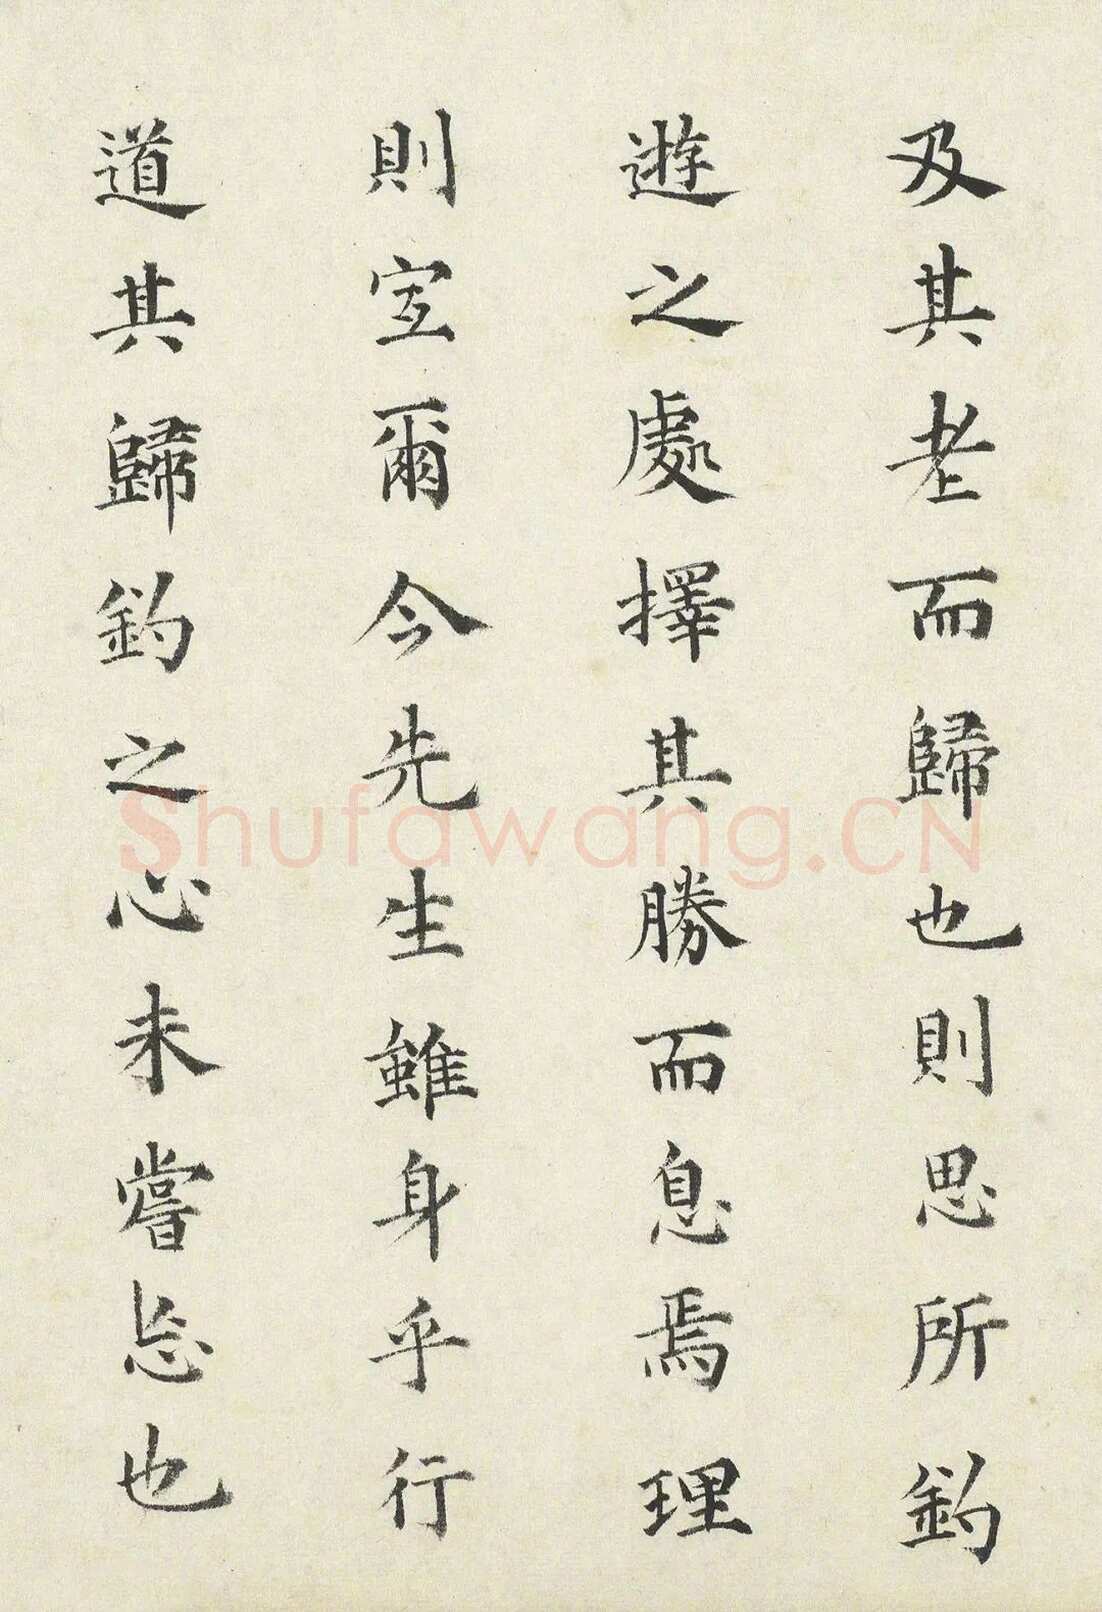 及其老而歸也則思所釣
遊之處擇其勝而息焉理
則宐爾今先生雖身乎行
道其歸釣之心未嘗忘也
Shufawang.CN